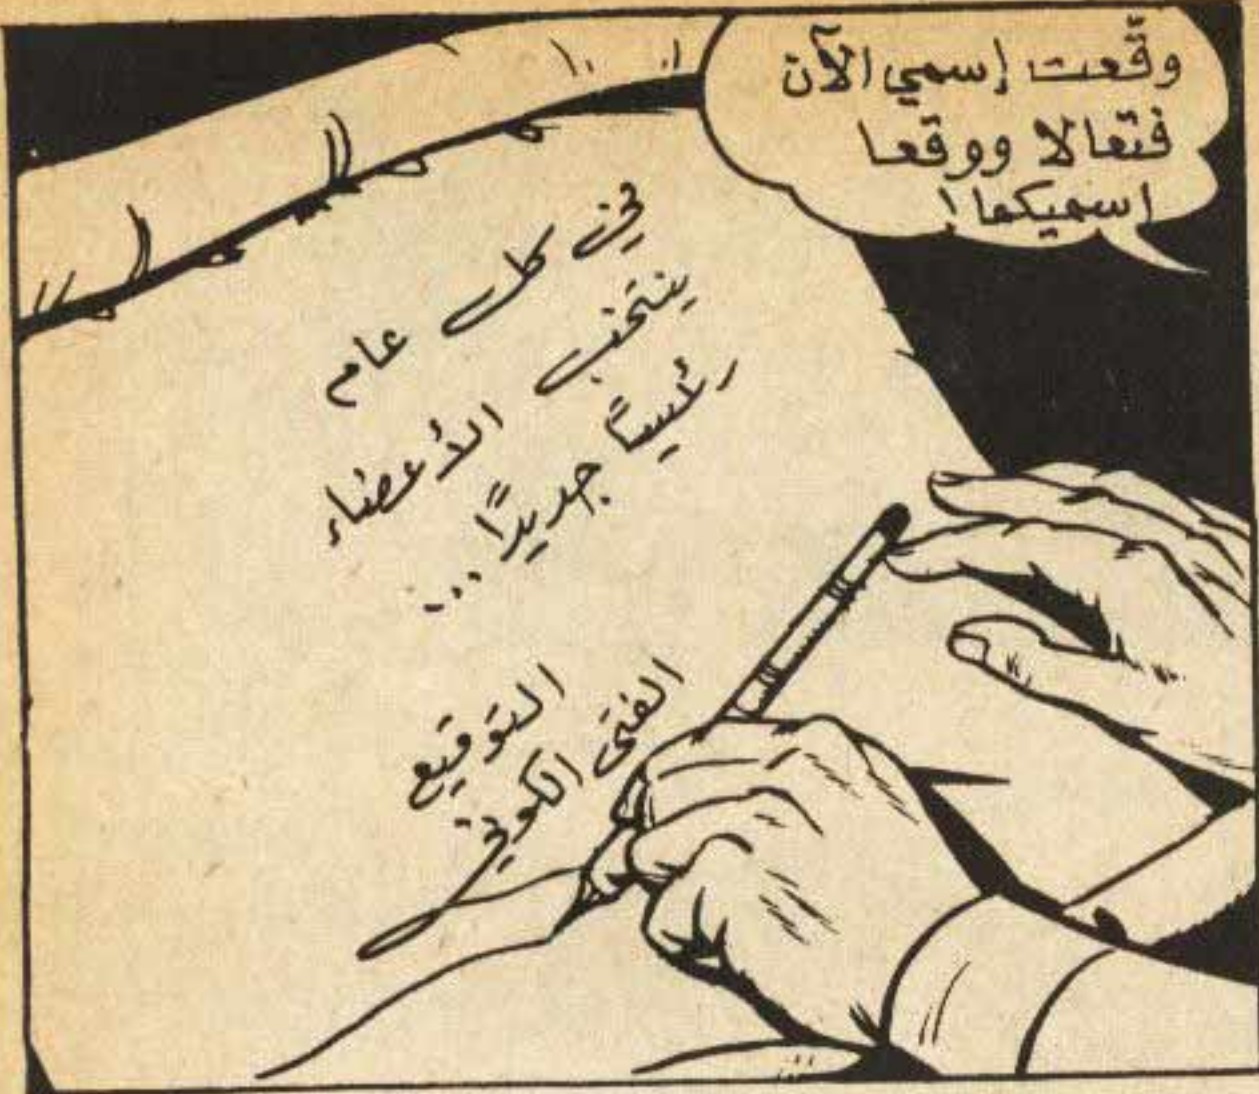 وقّعت إسمي الآن
فتعالا ووقعا
اسميكما!
في كل عام
ينتخب الأعضاء
رئيساً جديداً...
التوقيع
الفتى الكوني